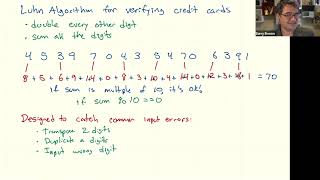 Luhn Algorithm for verifying credit cards
• double every other digit
• sum all the digits
4 5 3 9 7 0 4 3 5 4 7 0 6 3 9 1
= 70
if sum is multiple of 10, it's ok!
if sum % 10 == 0
Designed to catch common input errors:
• Transpose 2 digits
• Duplicate a digits
• Input wrong digit